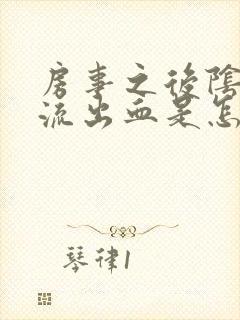 房事之後陰
流出血是怎
琴律1